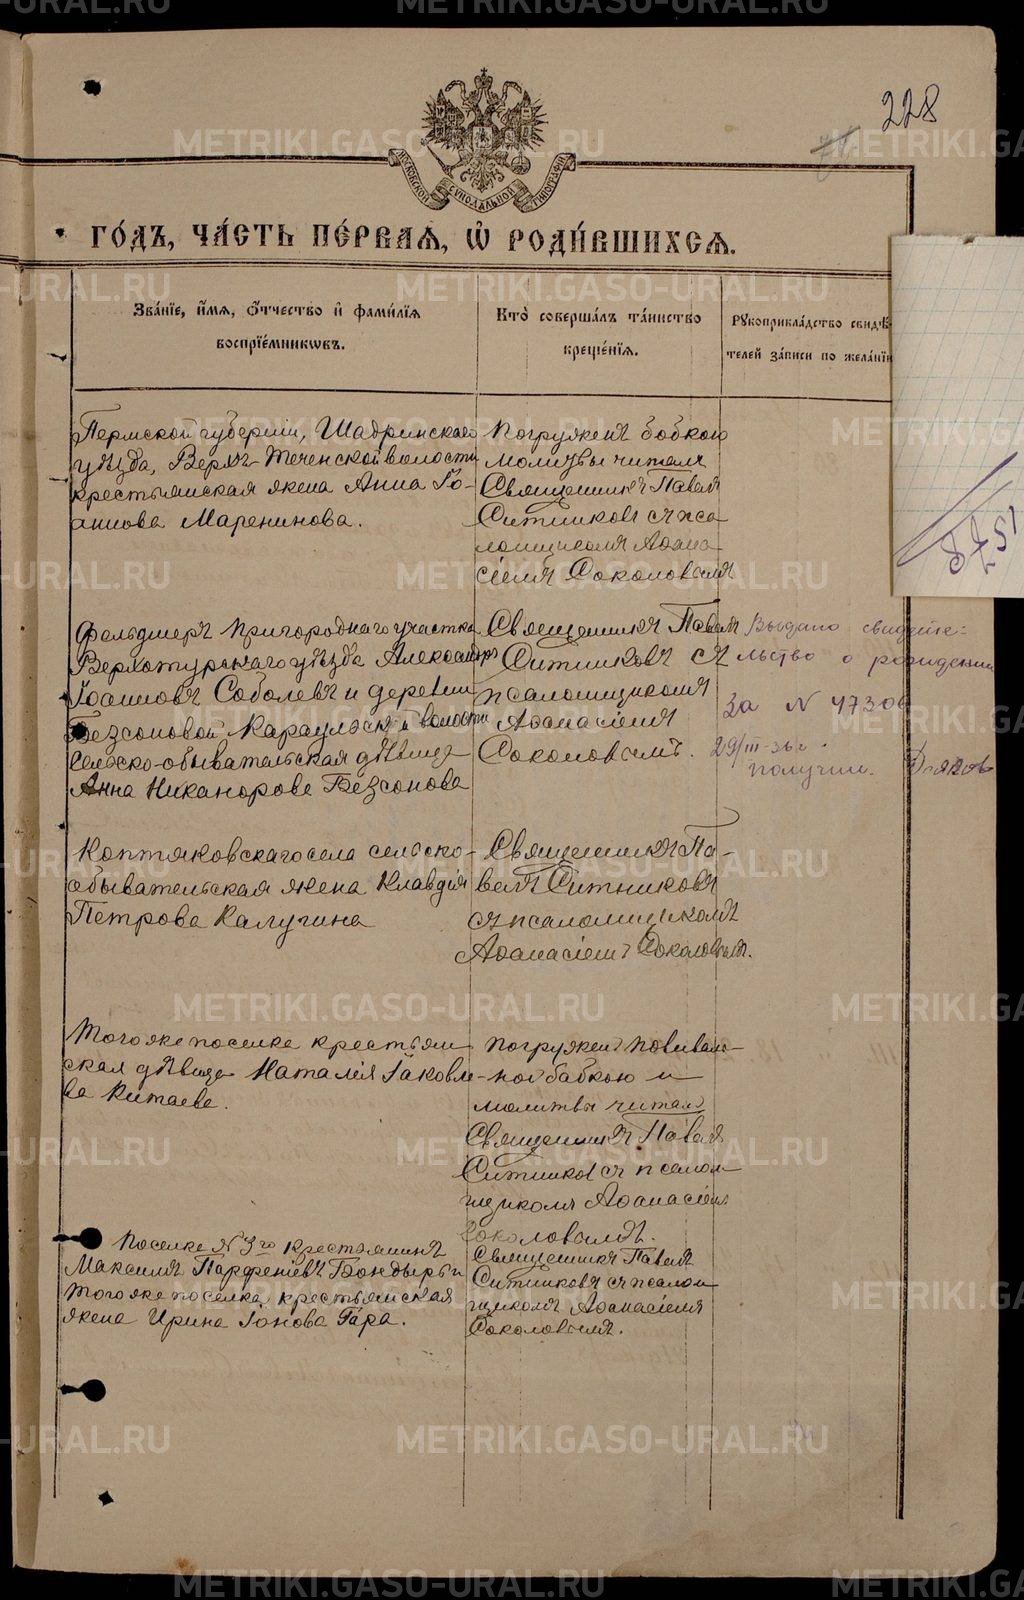 228
МОСКОВСКОЙ СѴНОДАЛЬНОЙ ТИПОГРАФІИ
ГО́ДЪ, ЧА́СТЬ ПЕ́РВАЯ, Ѡ РОДИ́ВШИХСЯ.
Зва́нїе, и́мя, ѻ҆́тчество и҆ фами́лїя
воспрїе́мникѡвъ.
Кто̀ соверша́лъ та́инство
креще́нїя.
Рукоприкла́дство свидѣ́-
телей за́писи по жела́нїю
Пермской губерніи, Шадринскаго
уѣзда, Верхъ-Теченской волости
крестьянская жена Анна Іо-
аннова Маренинова.
Погруженъ бабкою
молитвы читалъ
Священникъ Павелъ
Ситниковъ съ пса
ломщикомъ Аѳана
сіемъ Соколовымъ
Фельдшеръ пригороднаго участка
Верхотурскаго уѣзда Александръ
Іоанновъ Соболевъ и деревни
Безсоновой Караульской волости
сельско-обывательская дѣвица
Анна Никанорова Безсонова
Священникъ Павелъ
Ситниковъ съ
псаломщикомъ
Аѳанасіемъ
Соколовымъ.
Выдано свидете-
льство о рождении
за N 47306
29/III-36г.
получил. Дьяков
Коптяковскаго села сельско-
обывательская жена Клавдія
Петрова Калугина
Священникъ Па-
велъ Ситниковъ
съ псаломщикомъ
Аѳанасіемъ Соколовымъ.
Того же поселка крестьян
ская дѣвица Наталія Іаковле-
ва Китаева.
Погруженъ повиваль-
ной бабкою и
молитвы читалъ
Священникъ Павелъ
Ситниковъ съ псалом
щикомъ Аѳанасіемъ
Соколовымъ.
Поселка N 3го крестьянинъ
Максимъ Парфеніевъ Бондырь и
того же поселка крестьянская
жена Ирина Іонова Гара.
Священникъ Павелъ
Ситниковъ съ псалом
щикомъ Аѳанасіемъ
Соколовымъ.